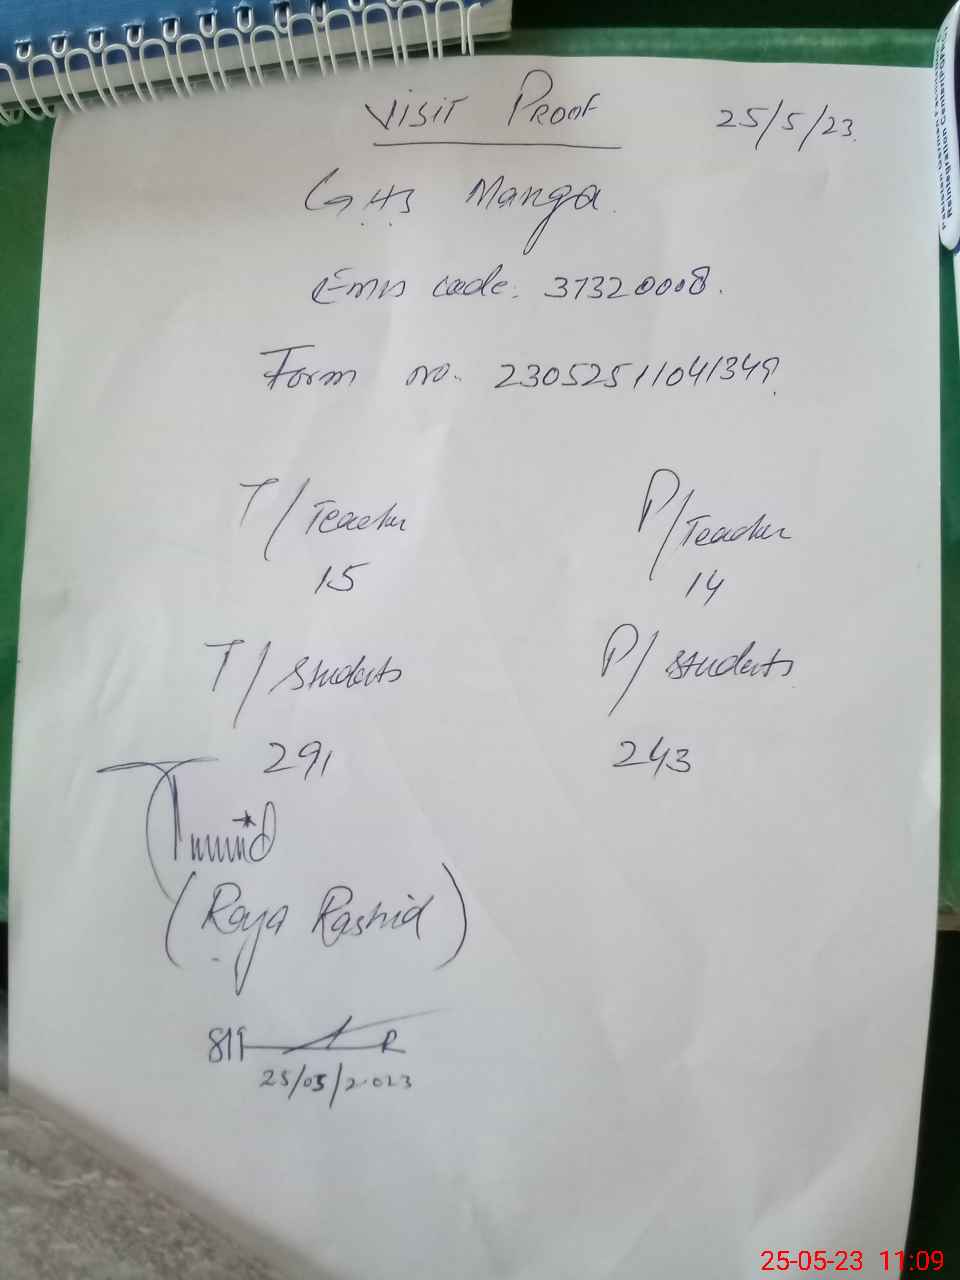 VISIT PROOF 25/5/23.
GHS Manga.
Emis code: 37320008.
Form no. 23052511041349.
T/Teacher P/Teacher
15 14
T/students P/students
291 243
(Raja Rashid)
25/05/2023
Reintegration Centre
25-05-23 11:09